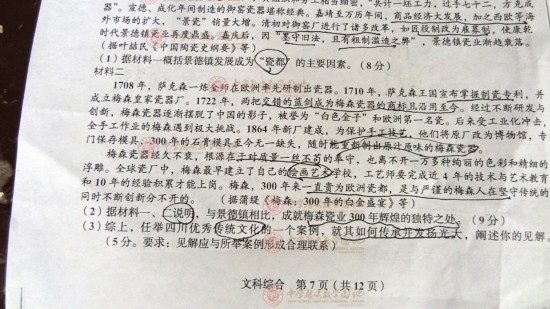 器"。宣德、成化年间制造的御窑瓷器堪称经典。嘉靖至万历年间,商品经济大发展,加之西欧等海
外市场的扩大,"景瓷"销量大增。清初对御窑厂进行了诸多改革,如匠役制改为雇募制,使康乾
时代景德镇瓷业再度鼎盛。鸦片后,因"墨守旧法,且有粗制滥造之弊",景德镇瓷业渐趋衰落。
(据叶喆民《中国陶瓷史纲要》等)
(1)据材料一概括景德镇发展成为"瓷都"的主要因素。(8分)
材料二
1708年,萨克森一炼金所在欧洲率先研制出瓷器。1710年,萨克森王国宣布掌握制瓷专利,并
成立梅森皇家瓷器厂。1722年,两把交错的蓝剑成为梅森瓷器的商标且沿用至今。经过不断研发与
创新,梅森瓷器逐渐摆脱了中国的影子,被誉为"白色金子"和欧洲第一名瓷。后来受工业化冲击,
全手工作业的梅森遇到极大挑战。1864年新厂建成,为保护手工技艺,他们将原厂改为博物馆,专
门保存模具,300年的石膏模具至今无一缺失,随时能重新制出原汁原味的梅森瓷器。
梅森瓷器经久不衰,根源在于对质量一丝不苟的奉守,也离不开一万多种绚丽的色彩和精细的
浮雕。全球瓷厂中,梅森最早建立了自己的绘画艺术学校,工艺师要完成近4年的技术与艺术教育
和10年的经验积累才能上岗。梅森,300年来一直贵为欧洲瓷都,是与严谨的梅森人在坚守传统的
同时不断创新分不开的。(据蒲缇《梅森:300年的白金盛宴》等)
(2)据材料一、二说明,与景德镇相比,成就梅森瓷业300年辉煌的独特之处。(9分)
(3)综上,任举四川优秀传统文化的一个案例,就其如何传承开发扬光大,阐述你的见解。
(5分。要求:见解应与所举案例形成合理联系)
文科综合 第7页(共12页)